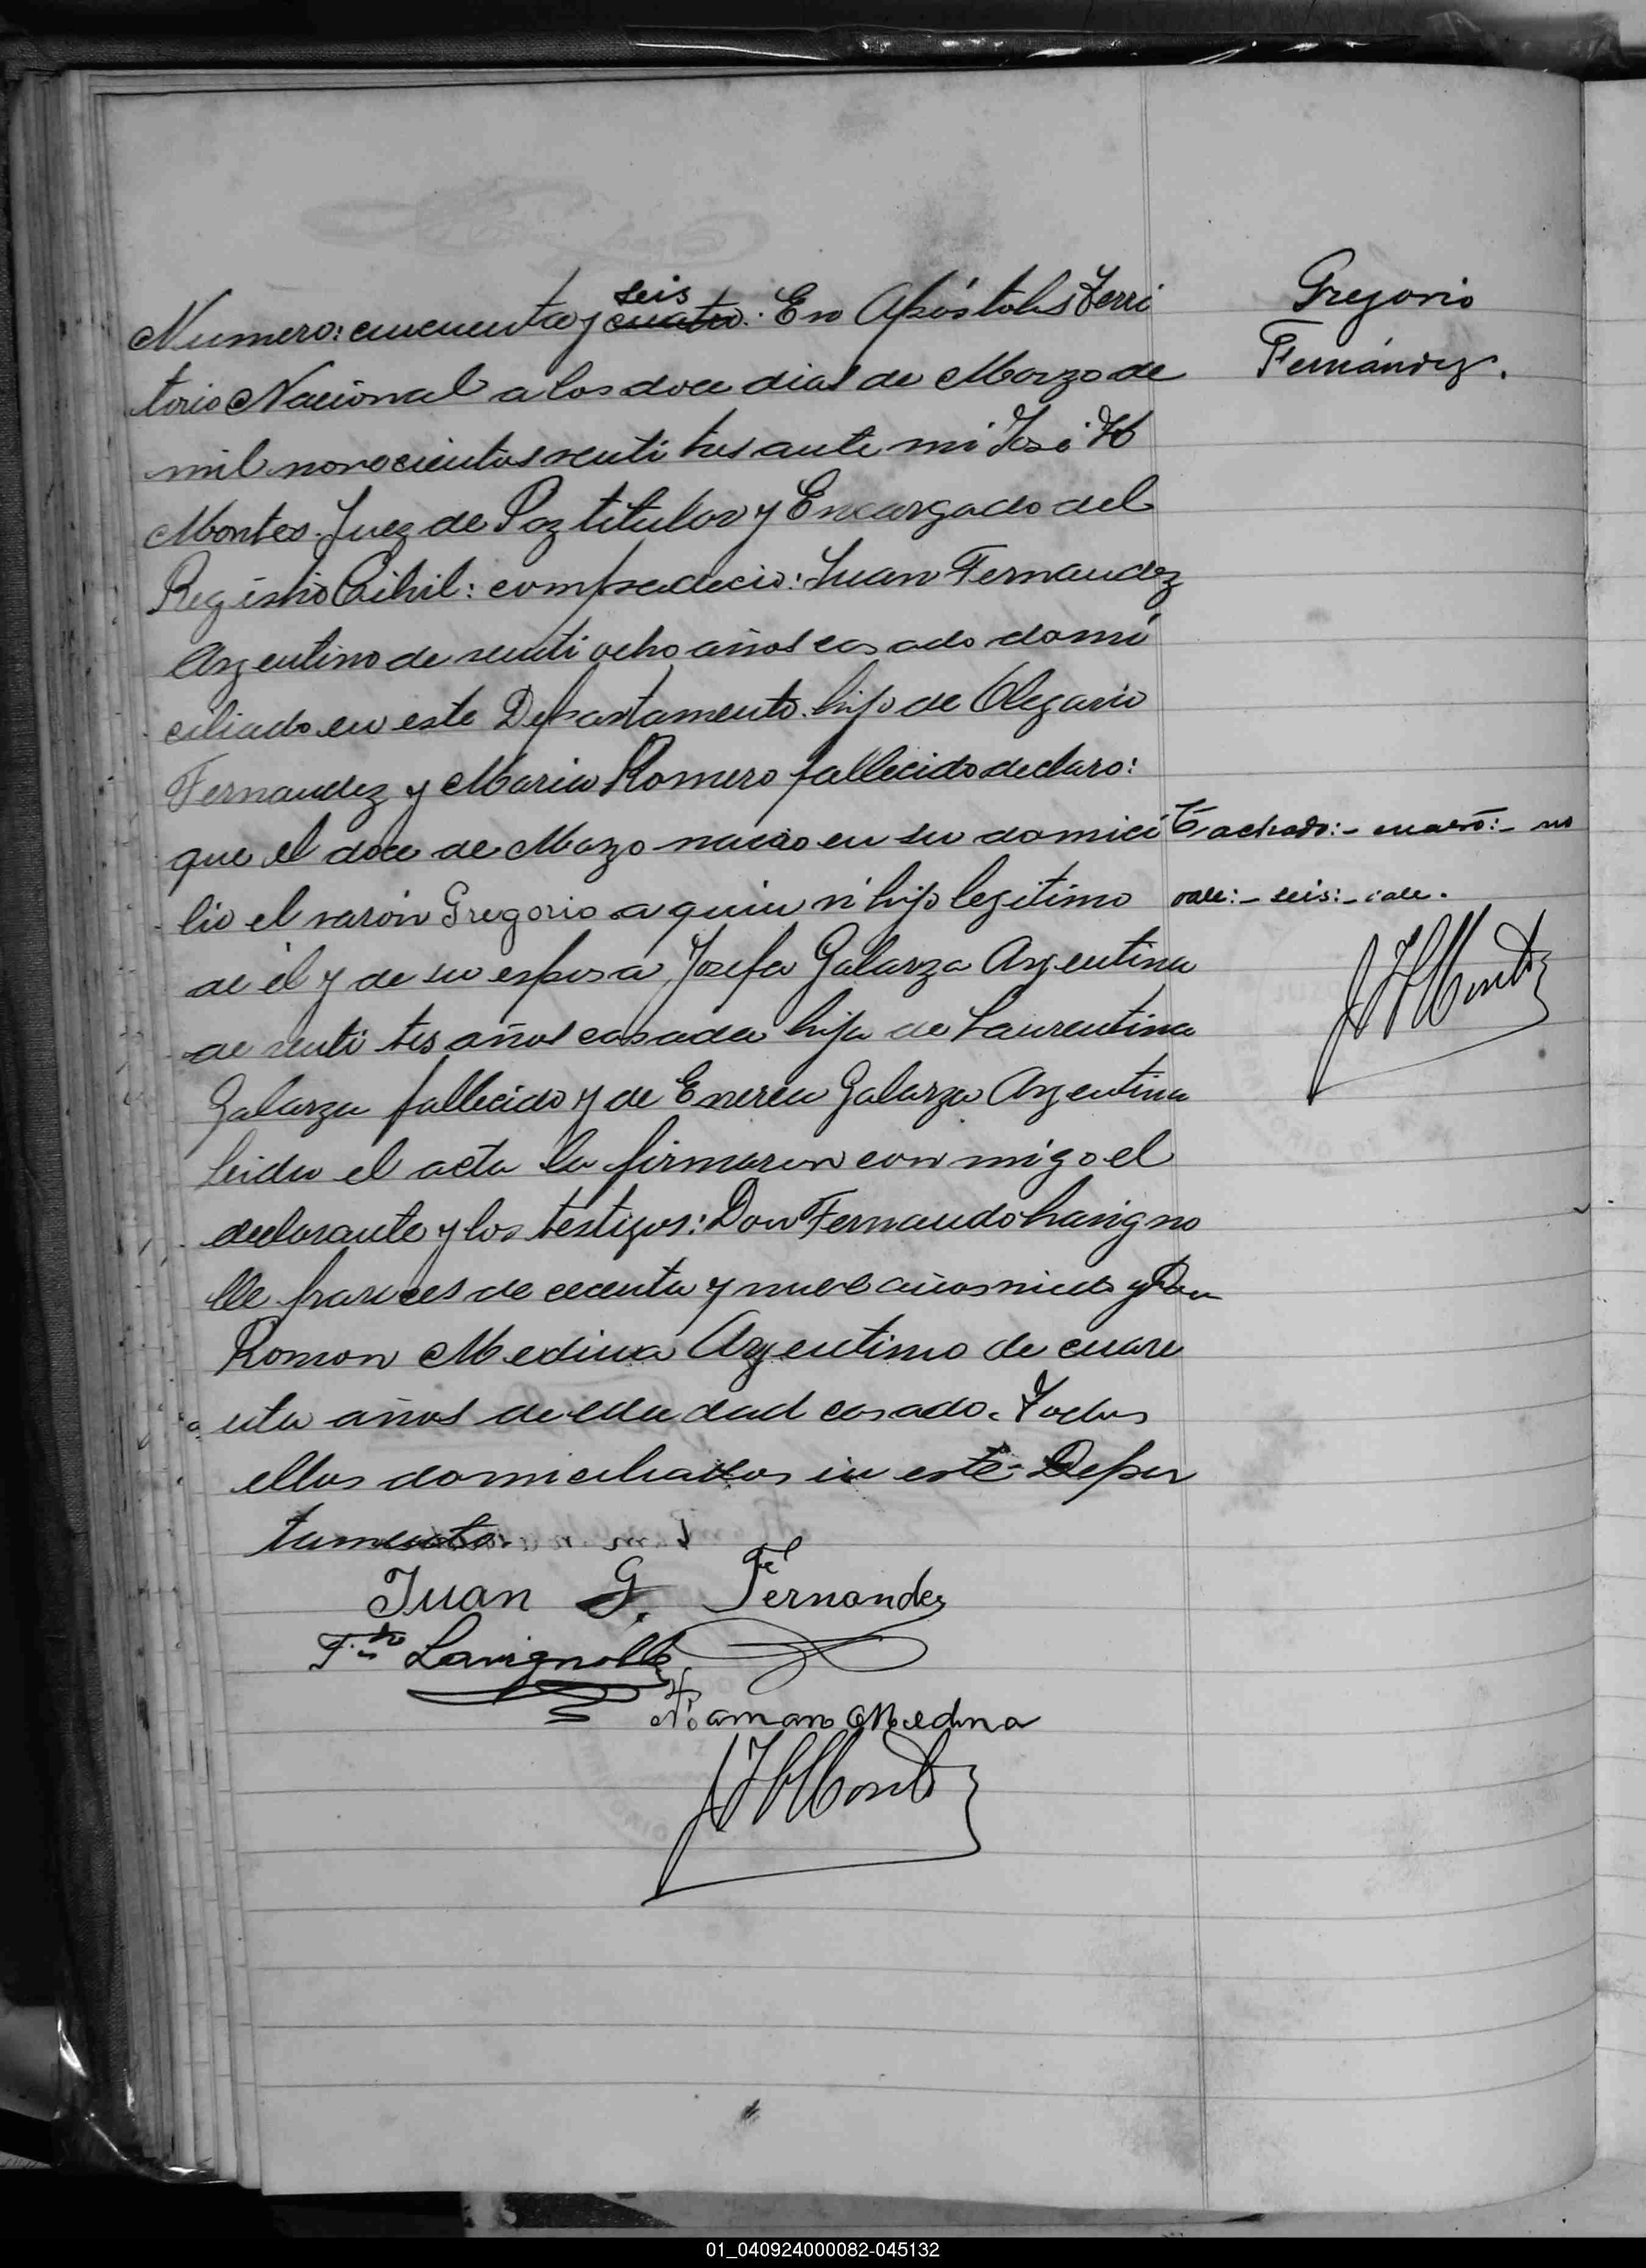 Gregorio
Fernández.
seis
Numero: cincuenta y cuatro. En Apóstoles Terri
torio Nacional a los doce dias de Marzo de
mil novecientos venti tres ante mi José H
Montes. Juez de Paz titular y Encargado del
Registro Cibil: compadecio: Juan Fernandez
Argentino de venti ocho años casado domi
ciliado en este Departamento. hijo de Olegario
Fernandez y Maria Romero fallecido declaro:
que el doce de Mazo nacio en su domici
lio el varón Gregorio a quien vi hijo legitimo
de él y de su esposa Josefa Galarza Argentina
de venti tres años casada hija de Laurentina
Galarza fallecido y de Enerea Galarza Argentina
leida el acta la firmaron con migo el
declarante y los testigos: Don Fernando Lavigno
lle frances de y nueve años y Don
Ramon Medina Argentino de cuare
nta años de eda dad casado. Todos
ellos domiciliados en este Depar
tamento.
Tachado:- cuatro:- no
vale:- seis:- vale.
JHMontes
Juan G. Fernandez
Fdo Lavignolle
Raman Medina
JHMontes
01_040924000082-045132